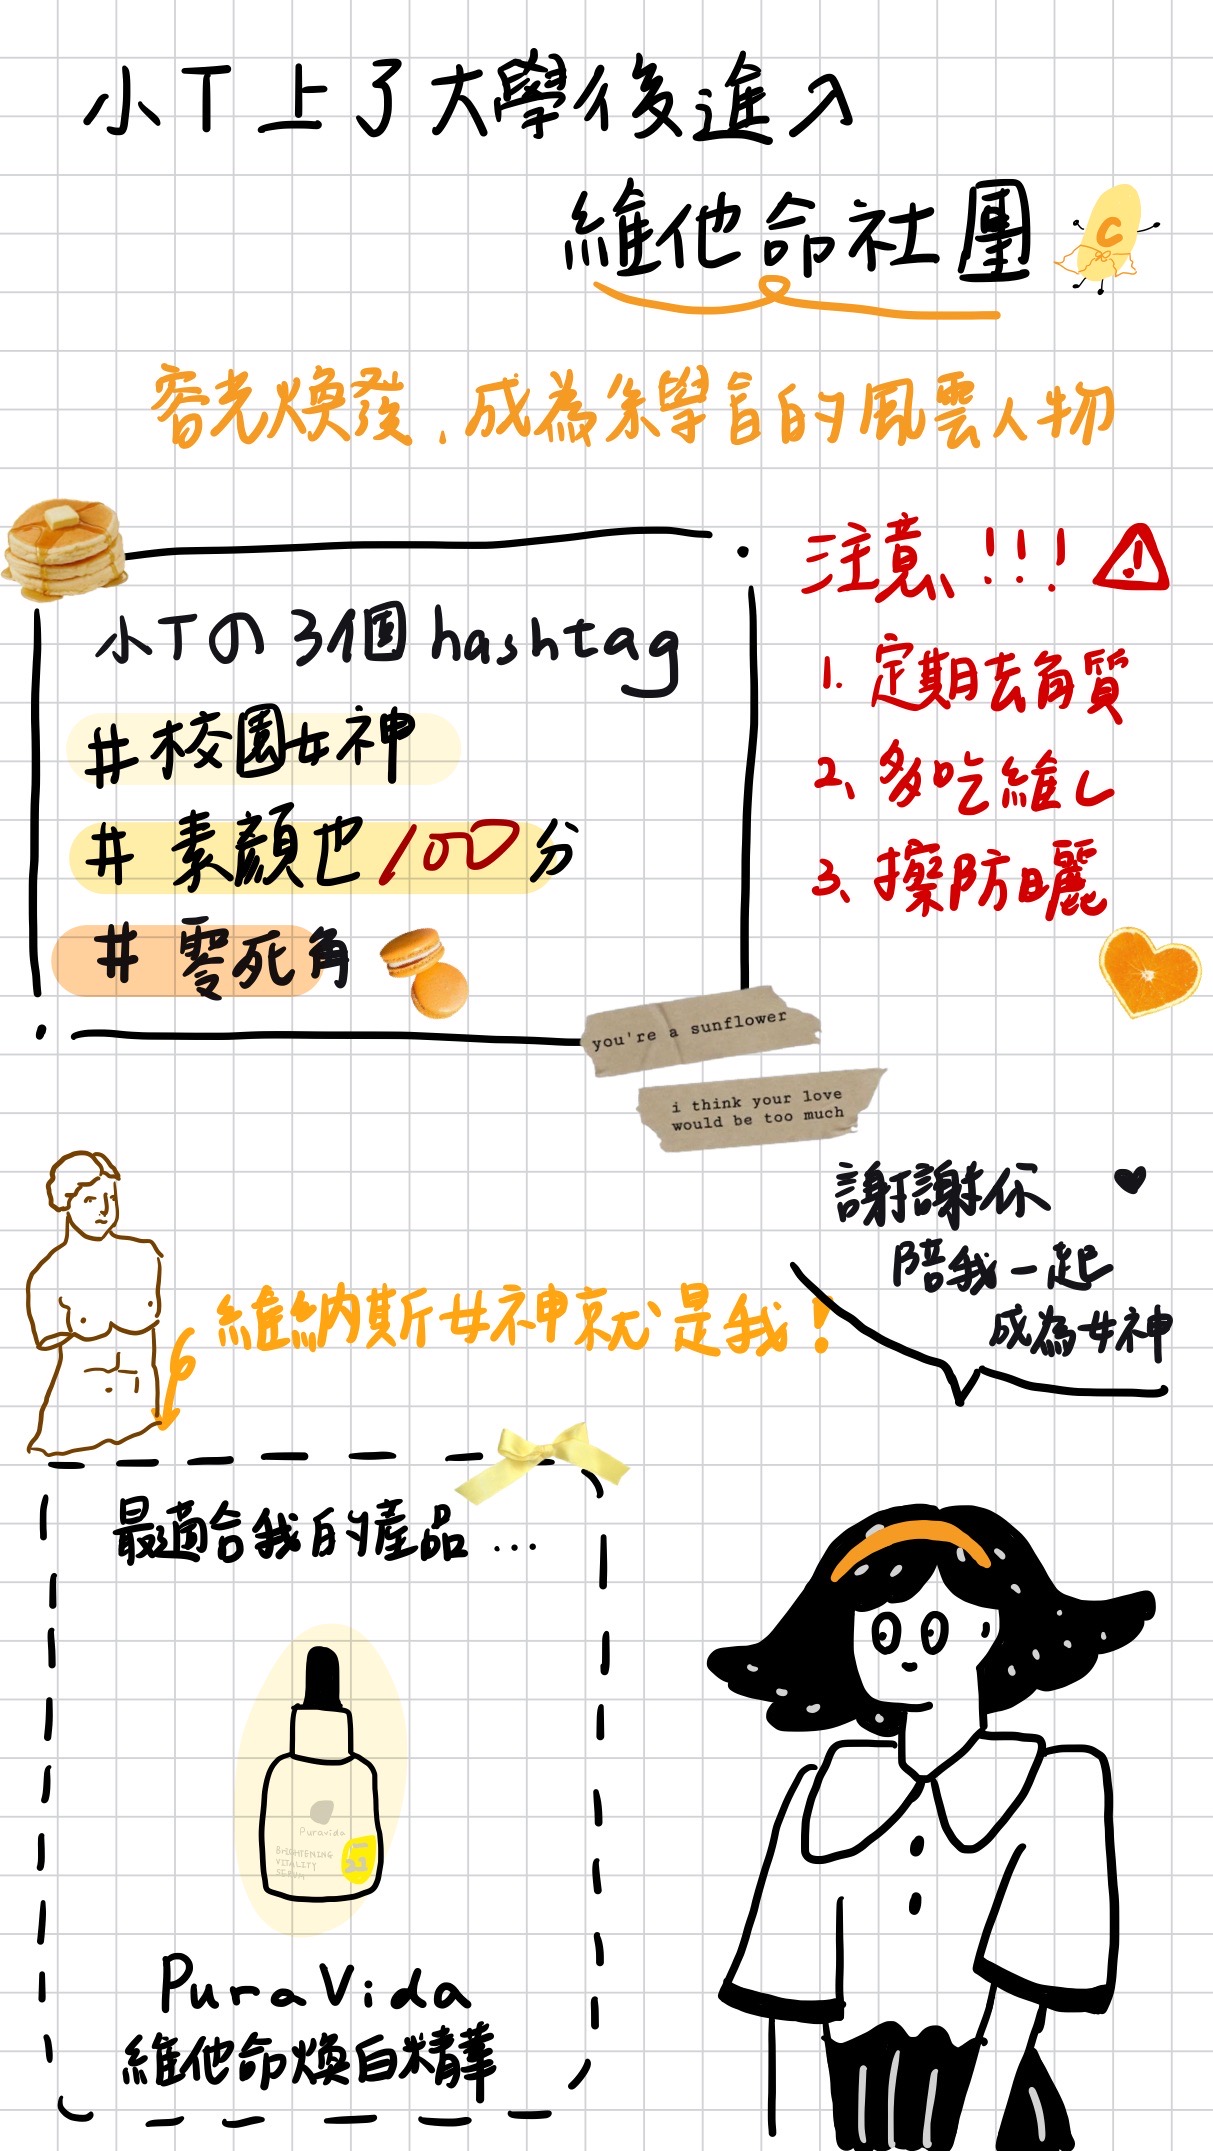 小T上了大學後進入
維他命社團
C
容光煥發,成為系學會的風雲人物
小Tの3個hashtag
#校園女神
#素顏也100分
#零死角
注意!!!
1.定期去角質
2、多吃維C
3、擦防曬
you're a sunflower
i think your love
would be too much
謝謝你
陪我一起
成為女神
維納斯女神就是我!
最適合我的產品...
Puravida
BRIGHTENING
VITALITY
SERUM
PuraVida
維他命煥白精華